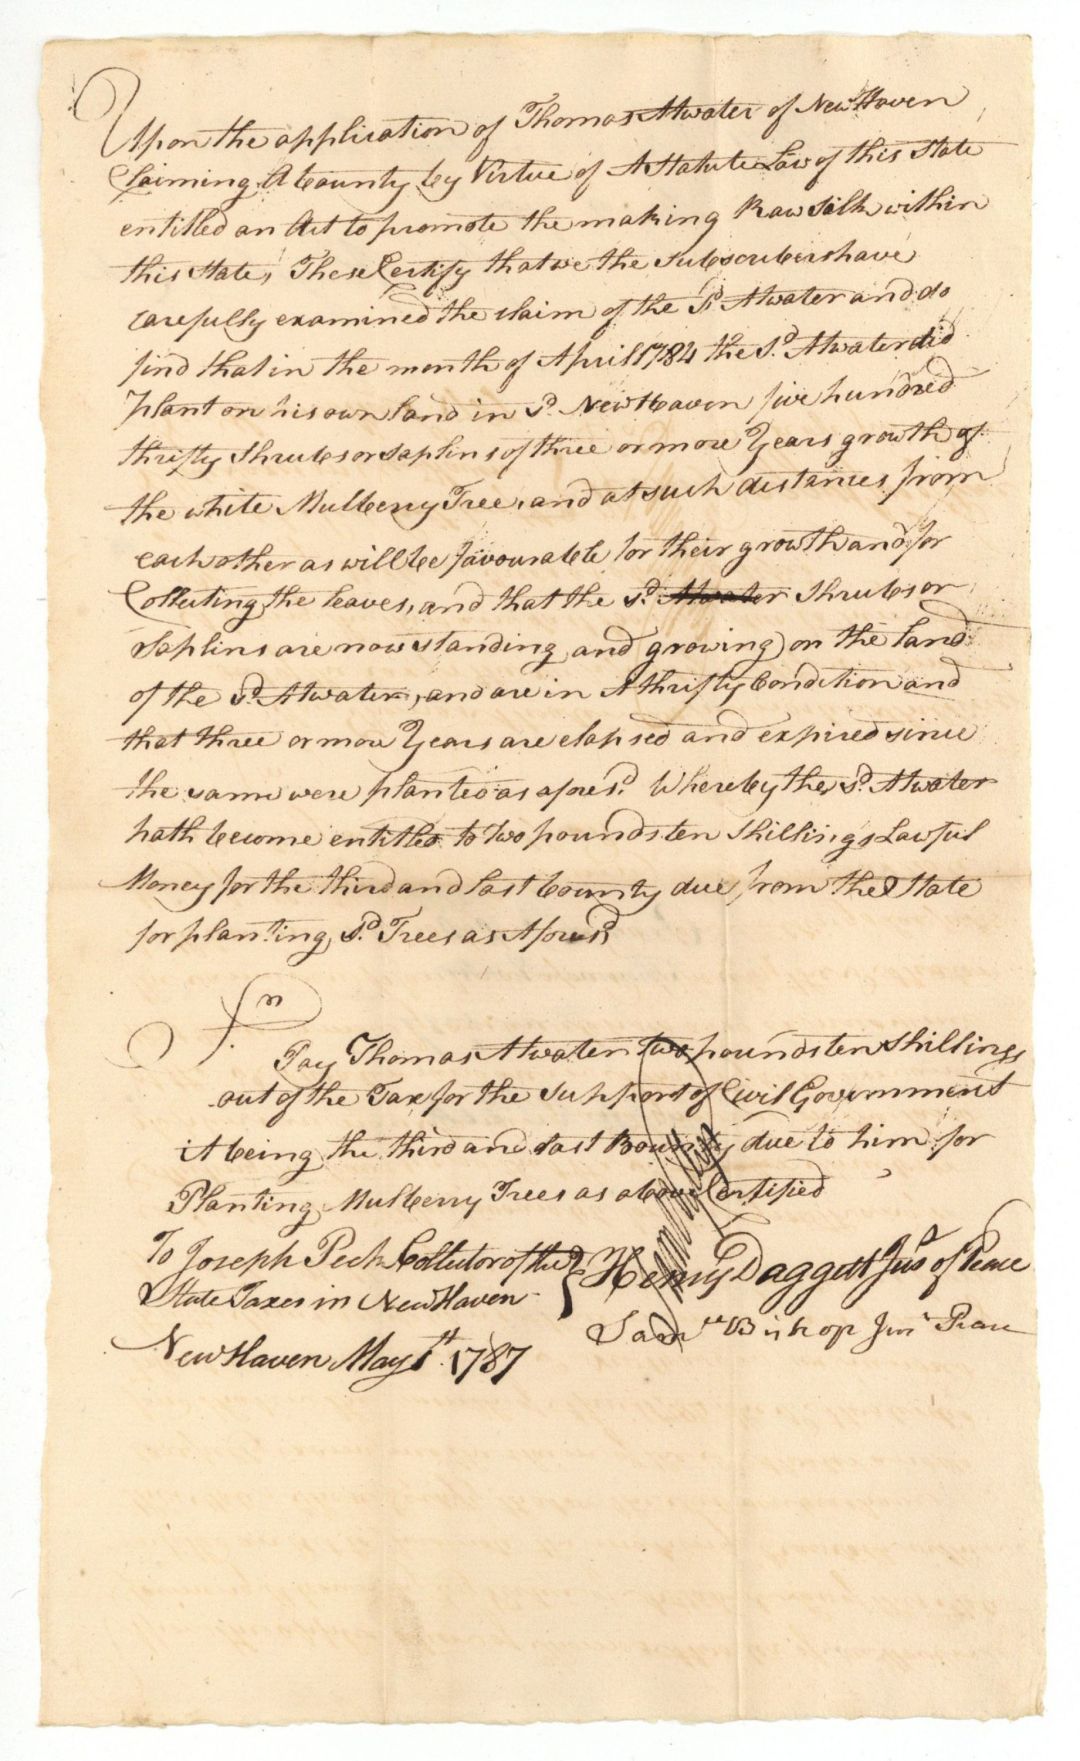 Upon the application of Thomas Atwater of New Haven
Claiming A bounty by Virtue of A Statute Law of this State
entitled an Act to promote the making Raw Silk within
this State, These Certify that we the Subscribers have
carefully examined the claim of the sd Atwater and do
find that in the month of April 1784 the sd. Atwater did
plant on his own land in sd. New Haven five hundred
thrifty Shrubs or Saplins of three or more Years growth of
the white Mulberry Tree, and at such distances from
each other as will be favourable for their growth and for
Collecting the leaves, and that the sd. Atwater Shrubs or
Saplins are now standing and growing on the land
of the sd. Atwater, and are in A thrifty Condition and
that three or more Years are elapsed and expired since
the same were planted as afores.d Whereby the sd. Atwater
hath become entitled to two pounds ten Shillings Lawful
Money for the third and last bounty due from the State
for planting sd. Trees as Aforesd
Sn
Pay Thomas Atwater two pounds ten Shillings
out of the Tax for the Support of Civil Government
it being the third and last Bounty due to him for
Planting Mulberry Trees as above Certified
To Joseph Peck Collector of the } Henry Daggett Jus of Peace
State Taxes in New Haven
Samll Bishop Jus Peace
New Haven May 1st 1787